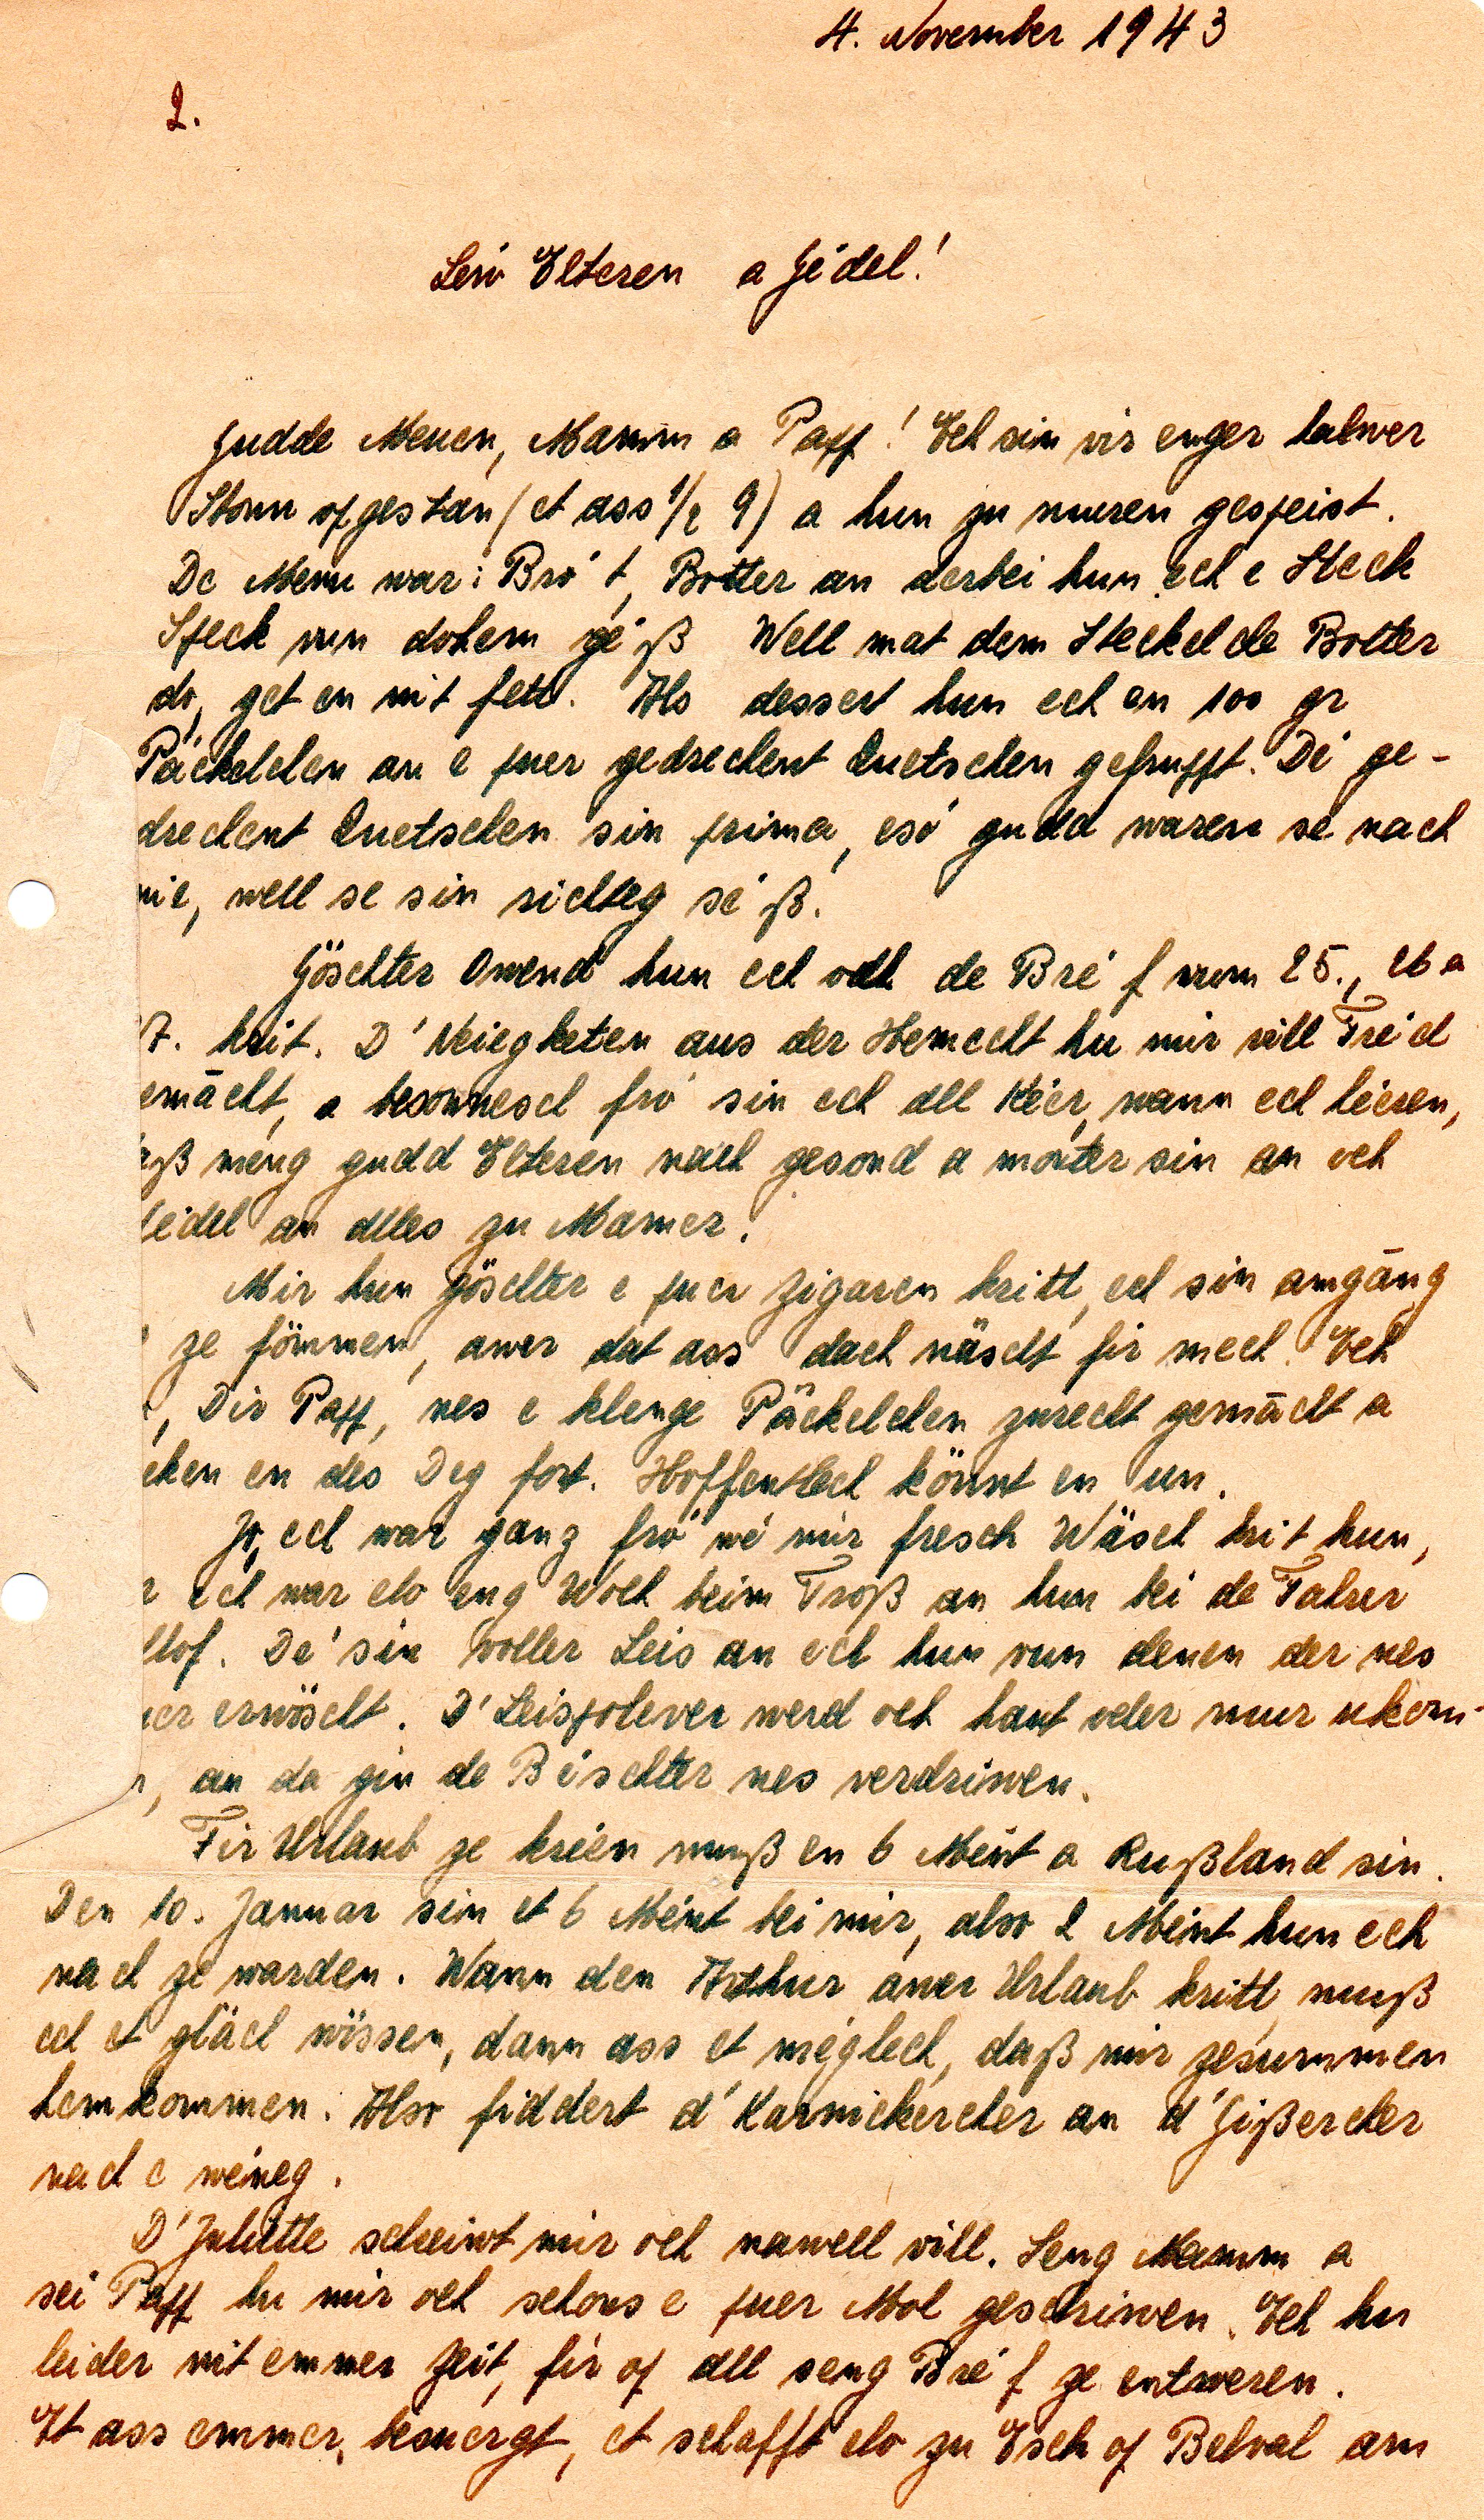 4. November 1943
2.
Léiv Elteren a Jédel!
Gudde Muen, Mamm a Papp! Ech sin vir enger halwer
Stonn opgestan (et ass 1/2 9) a hun zu muren gespeist.
De Menu war: Bro't, Botter an derbei hun ech e Steck
Speck vun dohem gé'ß Well mat dem Steckelche Botter
do, get en nit fett. Als dessert hun ech en 100 gr
Päckelchen an e puer gedrechent Quetschen gehufft. Dé ge-
drechent Quetschen sin prima, esó gudd waren se nach
nie, well se sin richteg sé'ß.
Göschter Owend hun ech och de Bré'f vum 25., 26 a
27. krit. D'Neiegketen aus der Hemecht hu mir vill Fréd
emächt, a besonnesch fró sin ech all Kéer, wann ech liesen,
aß méng gudd Elteren nach gesond a monter sin an och
édel an alles zu Mamer.
Mir hun göschter e puer Zigaren kritt, ech sin amgäng
ze fömmen, awer dat ass dach näscht fir mech. Ech
, Dir Papp, nes e klenge Päckelchen zurecht gemächt a
cken en des Deg fort. Hoffentlech könnt en un.
Jo, ech war ganz fró wé mir fresch Wäsch krit hun,
ech war elo eng Woch beim Troß an hun bei de Fahrer
lof. Dé sin voller Leis an ech hun vun denen der nes
uer erwöscht. D'Leispolever werd och haut oder muer ukom-
, an da gin de Béschter nes verdriwen.
Fir Urlaub ze kréen muß en 6 Méint a Rußland sin.
Den 10. Januar sin et 6 Méint bei mir, also 2 Méint hun ech
nach ze warden. Wann den Arthur awer Urlaub kritt, muß
ech et gläch wössen, dann ass et méglech, daß mir zesummen
hemkommen. Also fiddert d'Karnickercher an d'Gißercher
nach e wéineg.
D'Juliette schreiwt mir och nawell vill. Seng Mamm a
sei Papp hu mir och schons e puer Mol geschriwen. Ech hu
leider nit emmer Zeit, fir op all seng Bré'f ze entweren.
Et ass emmer besuergt, et schafft elo zu Esch op Belval am